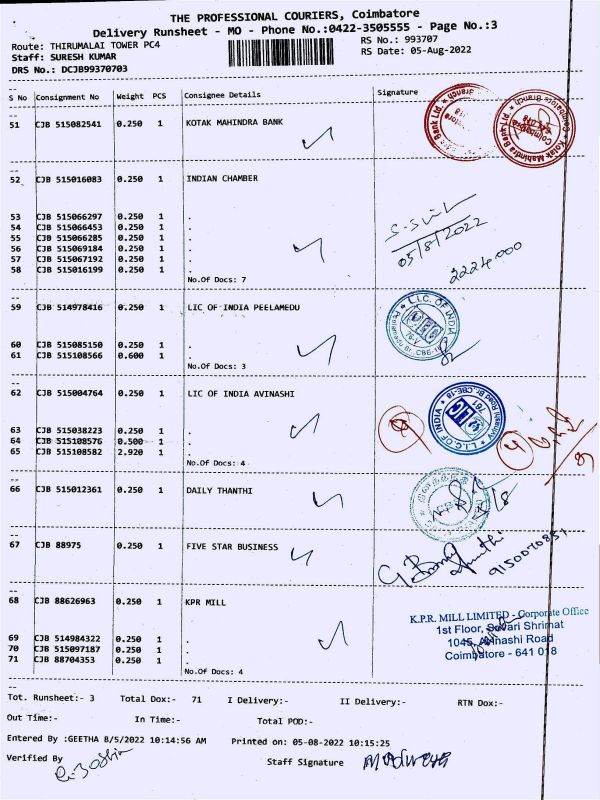 THE PROFESSIONAL COURIERS, Coimbatore
Delivery Runsheet - MO - Phone No.:0422-3505555 - Page No.:3
Route: THIRUMALAI TOWER PC4
RS No.: 993707
Staff: SURESH KUMAR
RS Date: 05-Aug-2022
DRS No.: DCJB99370703
S No Consignment No Weight PCS Consignee Details Signature
51 CJB 515082541 0.250 1 KOTAK MAHINDRA BANK
52 CJB 515016083 0.250 1 INDIAN CHAMBER
53 CJB 515066297 0.250 1 .
54 CJB 515066453 0.250 1 .
55 CJB 515066285 0.250 1 .
56 CJB 515069184 0.250 1 .
57 CJB 515067192 0.250 1 .
58 CJB 515016199 0.250 1 .
05/8/2022
2224000
No.Of Docs: 7
59 CJB 514978416 0.250 1 LIC OF INDIA PEELAMEDU
L.I.C. OF INDIA
60 CJB 515085150 0.250 1 .
61 CJB 515108566 0.600 1 .
No.Of Docs: 3
62 CJB 515004764 0.250 1 LIC OF INDIA AVINASHI
L.I.C. OF INDIA
63 CJB 515038223 0.250 1 .
64 CJB 515108576 0.500 1 .
65 CJB 515108582 2.920 1 .
No.Of Docs: 4
66 CJB 515012361 0.250 1 DAILY THANTHI
67 CJB 88975 0.250 1 FIVE STAR BUSINESS
68 CJB 88626963 0.250 1 KPR MILL
K.P.R. MILL LIMITED - Corporate Office
1st Floor, Srivari Shrimat
1045, Avinashi Road
Coimbatore - 641 018
69 CJB 514984322 0.250 1 .
70 CJB 515097187 0.250 1 .
71 CJB 88704353 0.250 1 .
No.Of Docs: 4
Tot. Runsheet:- 3 Total Dox:- 71 I Delivery:- II Delivery:- RTN Dox:-
Out Time:- In Time:- Total POD:-
Entered By :GEETHA 8/5/2022 10:14:56 AM Printed on: 05-08-2022 10:15:25
Verified By Staff Signature